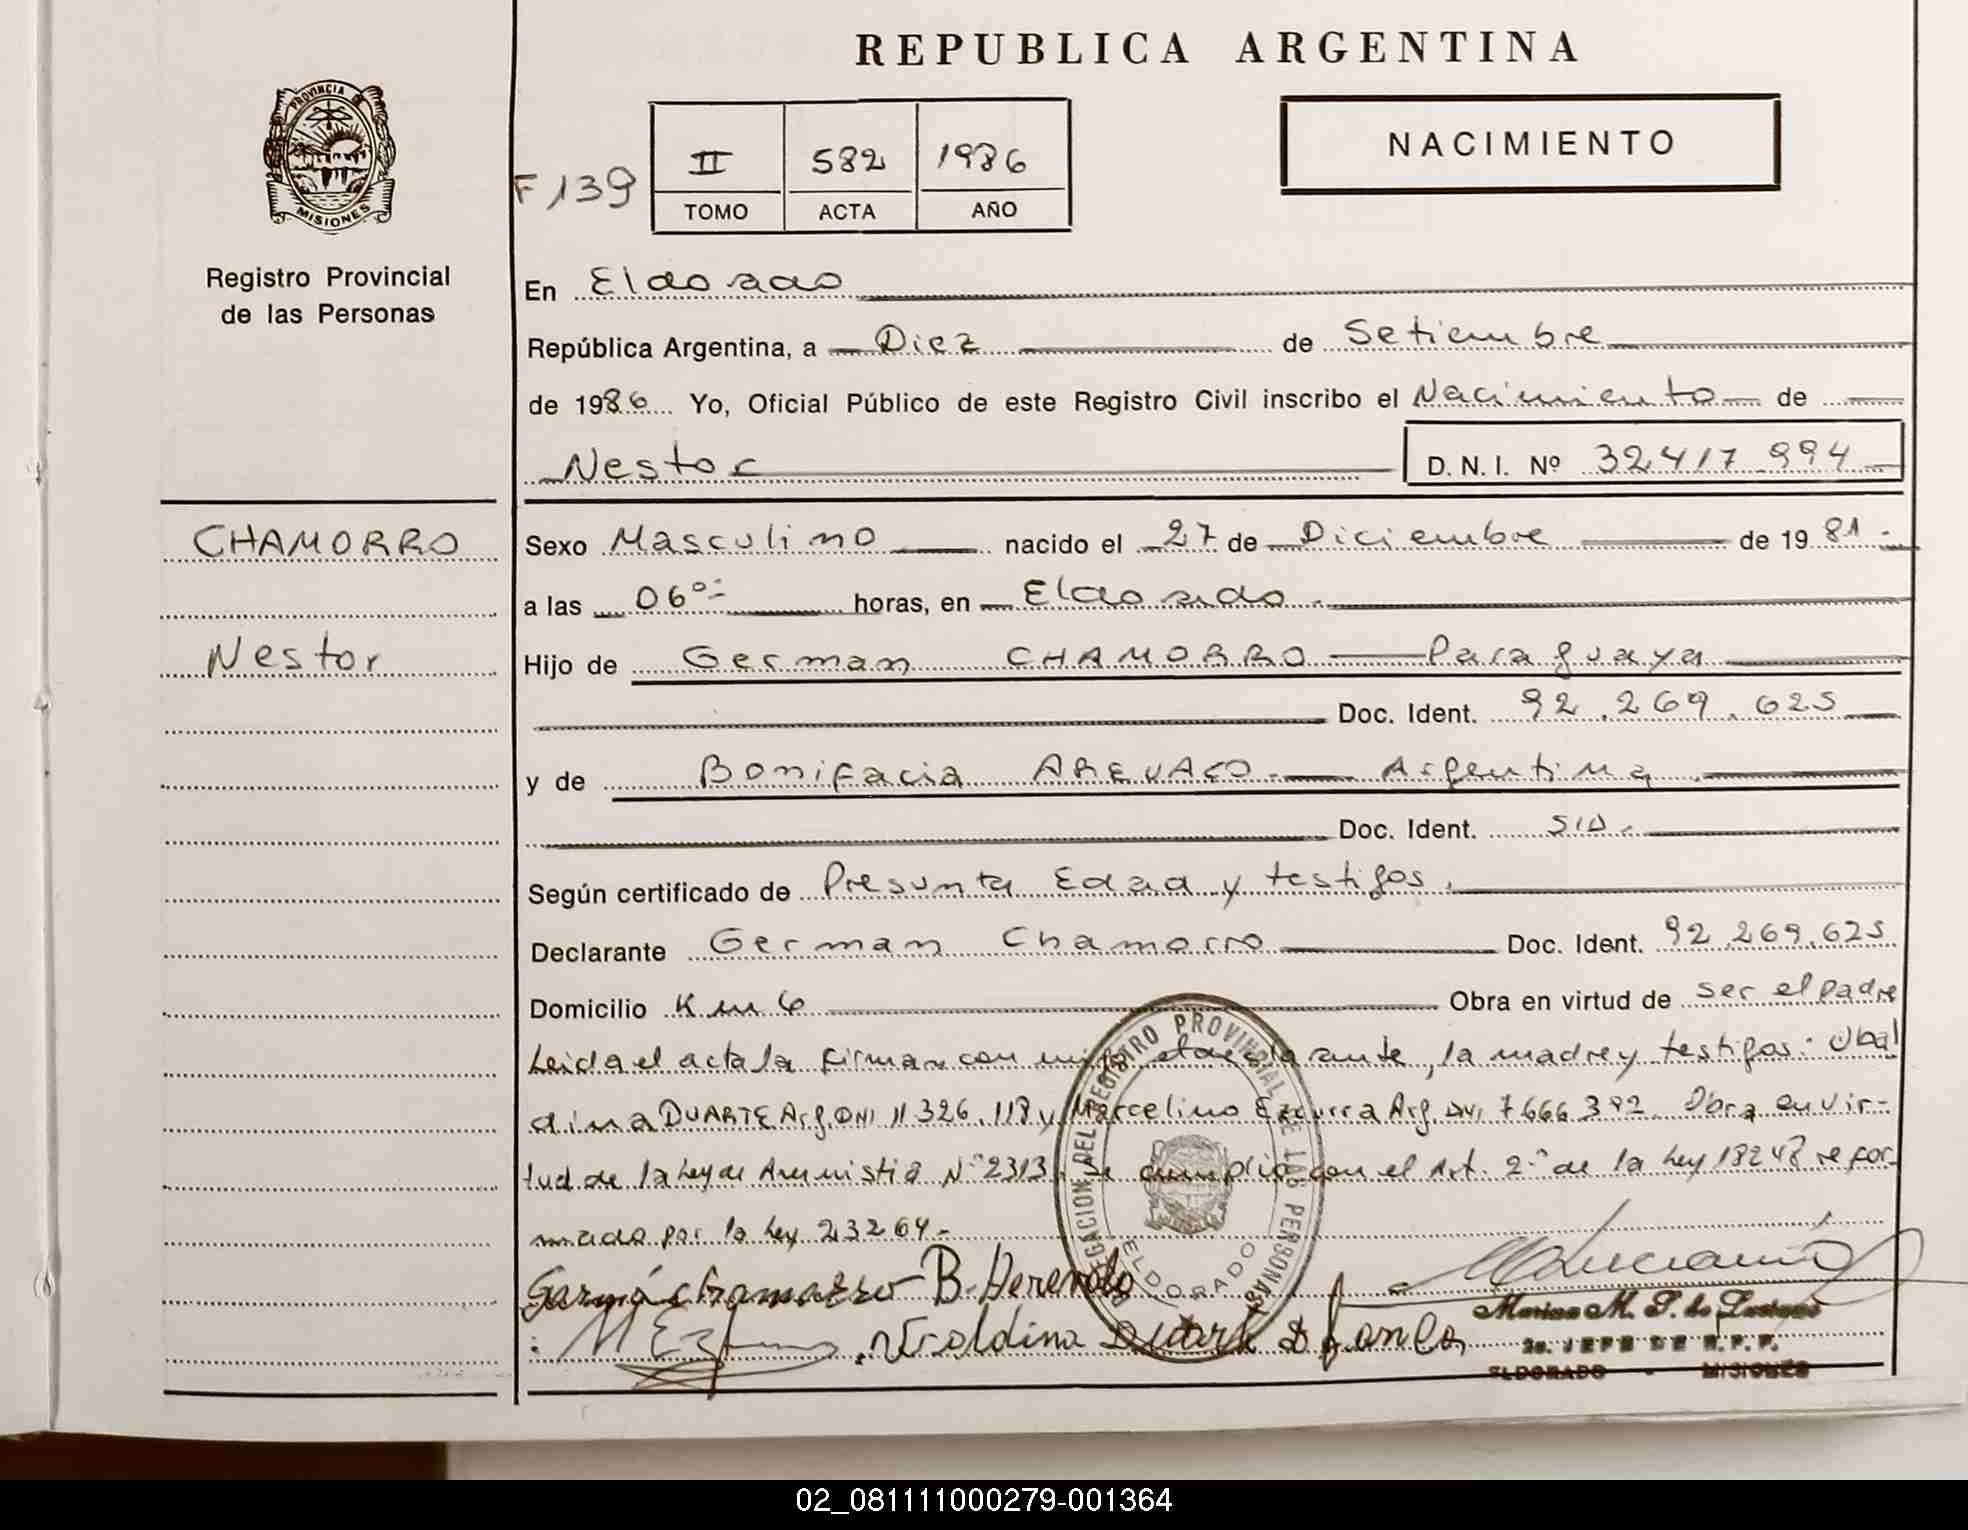 REPUBLICA ARGENTINA
PROVINCIA DE
MISIONES
Registro Provincial
de las Personas
NACIMIENTO
F 139
II 582 1986
TOMO ACTA AÑO
En Eldorado
República Argentina, a Diez de Setiembre
de 1986 Yo, Oficial Público de este Registro Civil inscribo el Nacimiento de
Nestor D. N. I. Nº 32417 994
CHAMORRO
Nestor
Sexo Masculino nacido el 27 de Diciembre de 19 81.-
a las 06°= horas, en Eldorado.
Hijo de German CHAMORRO Paraguaya
Doc. Ident. 92.269.625
y de Bonifacia AREVALO. Argentina.
Doc. Ident. S/D.
Según certificado de Presunta Edad y testigos.
Declarante German Chamorro Doc. Ident. 92.269.625
Domicilio Km 6 Obra en virtud de ser el padre
Leida el acta la firman con migo el declarante, la madre y testigos: Ubal
dina DUARTE Arg. DNI 11 326.118 y Marcelino Ezcurra Arg. DNI 7 666 392. Obra en vir-
tud de la Ley de Amnistia N° 2313. se cumplio con el Art. 2° de la Ley 18248 refor-
mado por la Ley 23264.-
German chamorro B. Arevalo
M Ez Duarte D
DELEGACION DEL REGISTRO PROVINCIAL DE LAS PERSONAS
ELDORADO
Marina M. P. de Luciano
2o. JEFE DE R.P.P.
ELDORADO - MISIONES
02_081111000279-001364